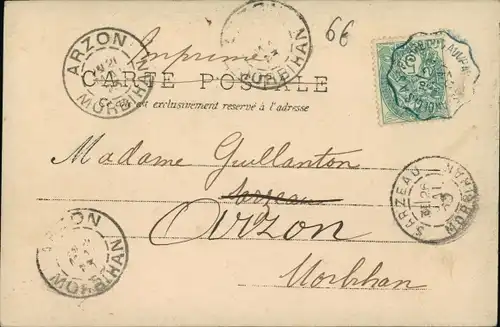 66
Imprimé
CARTE POSTALE
exclusivement reservé à l'adresse
Madame Guillanton
Sarzeau
Arzon
Morbihan
ARZON
MORBIHAN
MORBIHAN
SARZEAU
MORBIHAN
ARZON
MORBIHAN